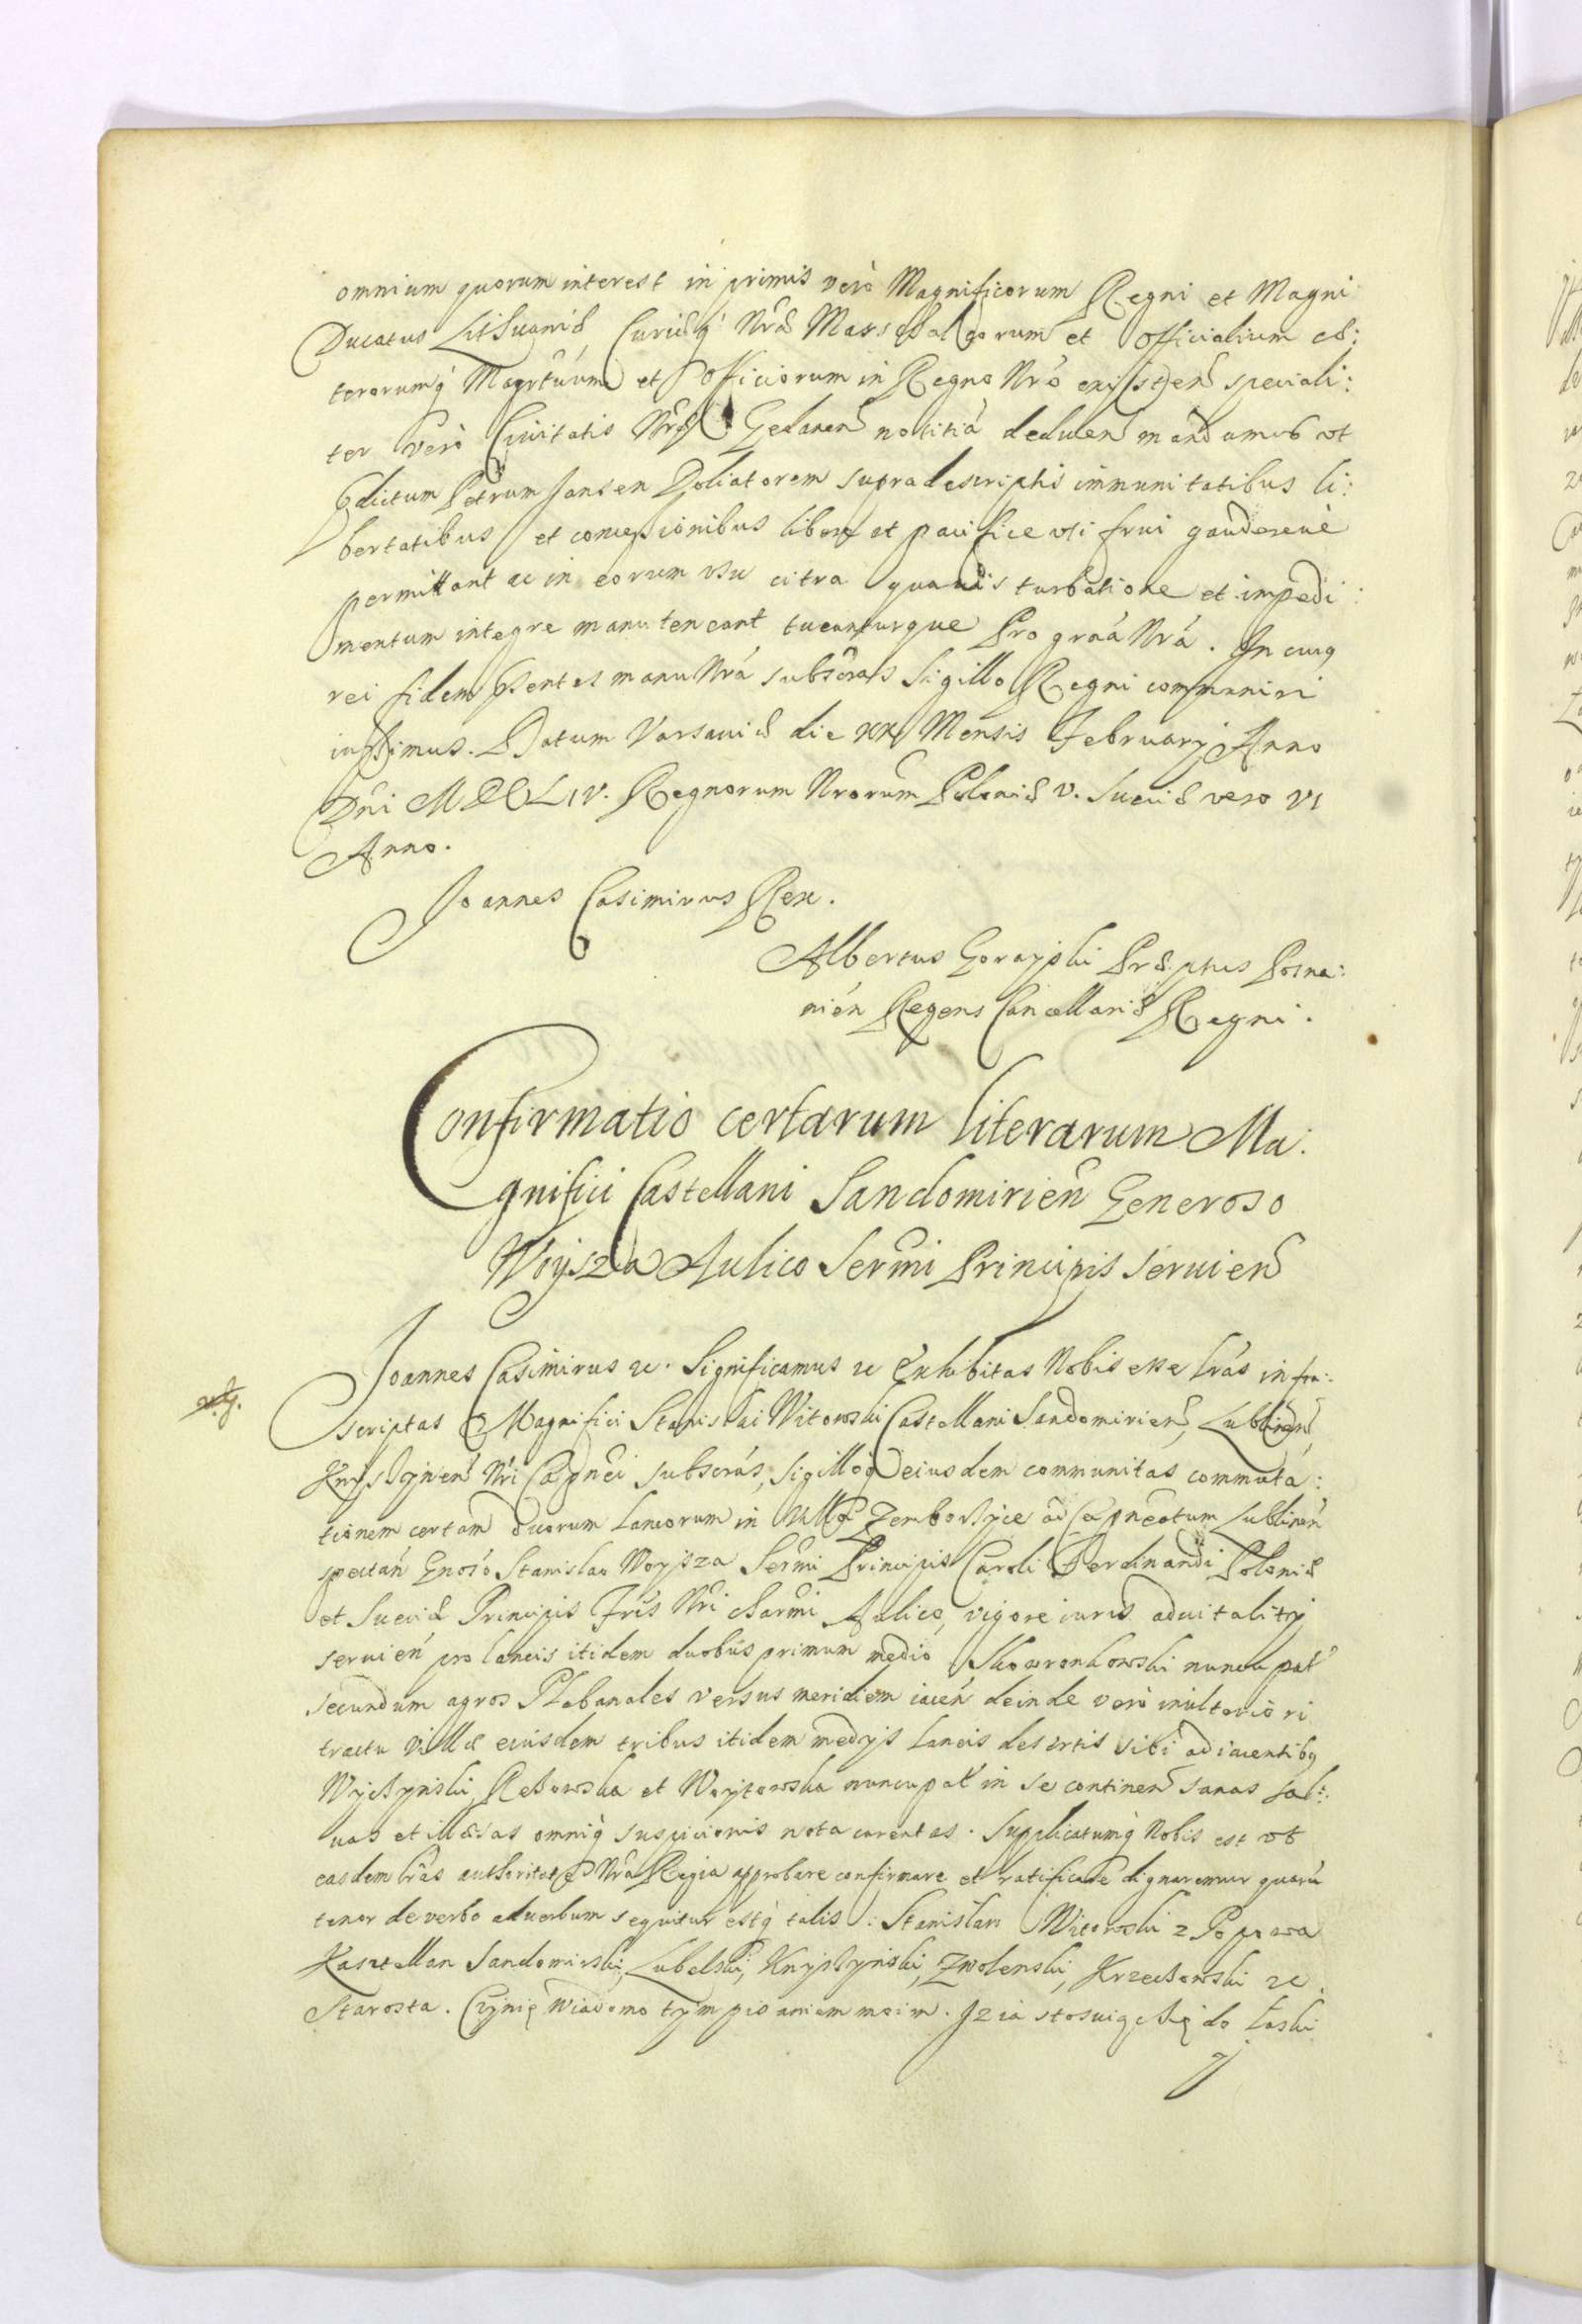 omnium quorum interest in primis verò Magnificorum Regni et Magni
Ducatus Lithuaniæ, Curiæq́ Nræ Marschalcorum et Officialium cæ:
terorumq́ Magrtuum et Officiorum in Regno Nrō existen̄ speciali:
ter verò Ciuitatis Nræ Gedanen̄ notitiā deducen̄ mandamus vt
Pdictum Petrum Jansen Doliatorem supradescriptis immunitatibus li:
bertatibus et concessionibus libere et pacifice vti frui gaudereuè
permittant ac in eorum vsu citra quamuis turbatione et impedi:
mentum integre manuteneant tueanturque Pro graā Nrā. In cuiq
rei fidem Psentes manu Nrā subscras Sigillo Regni communiri
iussimus. Datum Varsauiæ die XX Mensis February Anno
Dni MDCLIV. Regnorum Nrorum Poloniæ V. Sueciæ vero VI
Anno.
Joannes Casimirus Rex.
Albertus Gorayski Præptus Posna:
nien̄ Regens Cancellariæ Regni.
Confirmatio certarum literarum Ma:
gnifici Castellani Sandomirien̄ Generoso
Woysza Aulico Sermi Principis seruien̄
Joannes Casimirus &c. Significamus &c Exhibitas Nobis esse lrās infra:
scriptas Magnifici Stanislai Witowski Castellani Sandomirien̄, Lublinen̄,
Knyszynen̄ Nri Capnei subscrās, sigilloq́ eiusdem communitas commuta:
tionem certam duorum laneorum in villa Zemborzyce ad Capneatum Lublinen̄
spectan̄ Gnoso Stanislao Woysza Sermi Principis Caroli Ferdinandi Poloniæ
et Sueciæ Principis Fris Nri charmi Aulico, vigore iuris aduitality
seruien̄ pro laneis itidem duobus primum medio Skowronkowski nuncupat
secundum agros Plebanales versus meridiem iacen̄ deinde verò in vlteriori
tractu villæ eiusdem tribus itidem medijs laneis desertis sibi adiacentibq
et Woytowska nuncupat in se continen̄ sanas sal:
uas et illæsas omniq́ suspicionis nota carentes. Supplicatumq́ Nobis est vt
easdem lrās authoritate Nrā Regia approbare confirmare et ratificare dignaremur quarū
tenor de verbo aduerbum sequitur estq́ talis: Stanisław Witowski z Popowa
Kasztellan Sandomirski, Lubelski, Knyszynski, Zwolenski, Krzeczowski &c
Starosta. Czynię wiadomo tym pisaniem moim. Iz ia stosuiąc się do łaski
J